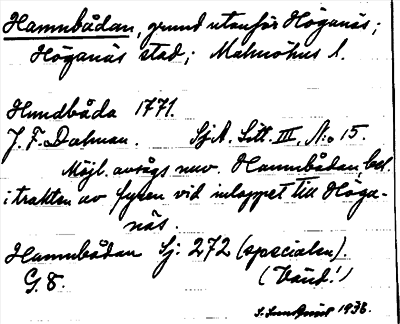 Hamnbådan, grund utanför Höganäs;
Höganäs stad; Malmöhus l.
Hundbåda 1771.
J. F. Dalman. Sj.A. Litt. III, N:o 15.
Möjl. avsågs nuv. Hamnbådan, bel.
i trakten av fyren vid inloppet till Höga-
näs.
Hamnbådan Sj: 272 (specialen).
G. 8. (Vänd!)
1938.